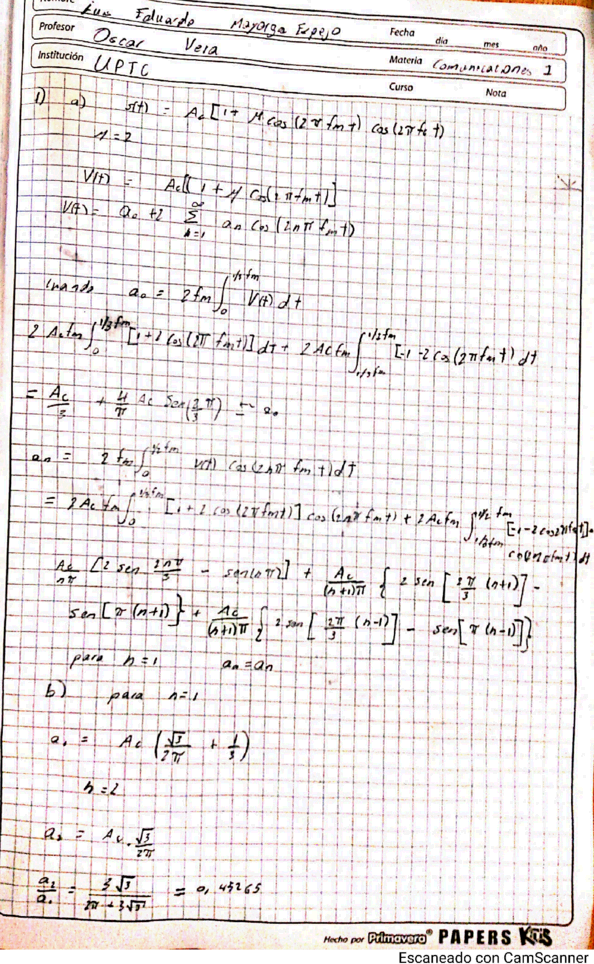 Nombre Luis Eduardo Mayorga Espejo
Profesor Oscar Vera
Fecha día mes año
Institución UPTC
Materia Comunicaciones 1
Curso Nota
1) a) s(t) = Ac [1 + μ cos (2π fm t) cos (2π fc t)
μ = 2
V(t) = Ac[[1 + μ cos(2π fm t)]
V(t) = a₀ + 2 ∑ₙ₌₁^∞ aₙ cos (2nπ fm t)
a₀ = 2fm ∫₀^(1/2fm) V(t) dt
2 Ac fm ∫₀^(1/3fm) [1 + 2 cos (2π fm t)] dt + 2 Ac fm ∫_(1/3fm)^(1/2fm) [-1 -2 cos (2π fm t) dt
= Ac/3 + 4/π Ac Sen(2/3 π) ← a₀
aₙ = 2 fm ∫₀^(1/2fm) v(t) cos (2nπ fm t) dt
= 2Ac fm ∫₀^(1/3fm) [1 + 2 cos (2π fm t)] cos (2nπ fm t) + 2 Ac fm ∫_(1/3fm)^(1/2fm) [-1 -2 cos 2π fm t].
cos(2nπ fm t) dt
Ac/nπ [2 sen 2nπ/3 - sen(nπ)] + Ac/(n+1)π { 2 sen [2π/3 (n+1)] -
sen [π (n+1)]} + Ac/(n+1)π { 2 sen [2π/3 (n-1)] - sen[π (n-1)]}
para n = 1 aₙ = aₙ
b) para n = 1
a₁ = Ac (√3/2π + 1/3)
n = 2
a₂ = Ac . √3/2π
a₂/a₁ = 3√3/(2π + 3√3) = 0,45265
Hecho por Primavera® PAPERS KIDS
Escaneado con CamScanner